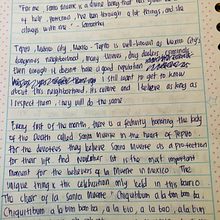 "For me Santa Muerte is a divine being that has given me a lot
of help, personal, I've been through a lot of things, and she
always with me." - Samantha
Tepito, Mexico City, Mexico - Tepito is well-known as Mexico City's
dangerous neighborhood, many thieves, drug dealers, criminals
Even though it doesn't have a good reputation
I still want to get to know
about this neighborhood, its culture and I believe as long as
I respect them, they will do the same.
Every first of the months, there is a festivity honoring the body
of the Death called Santa Muerte in the heart of Tepito
for the devotees they believe Santa Muerte is a protection
for their life. And November is the most important
moment for the believers of La Muerte in Mexico. The
unique thing is this celebration only held in this barrio
The choir of la Santa Muerte Chiquitibum a la bim bom ba,
Chiquitibum a la bim bom ba, a la bio a la bao, a la bim
bom ba